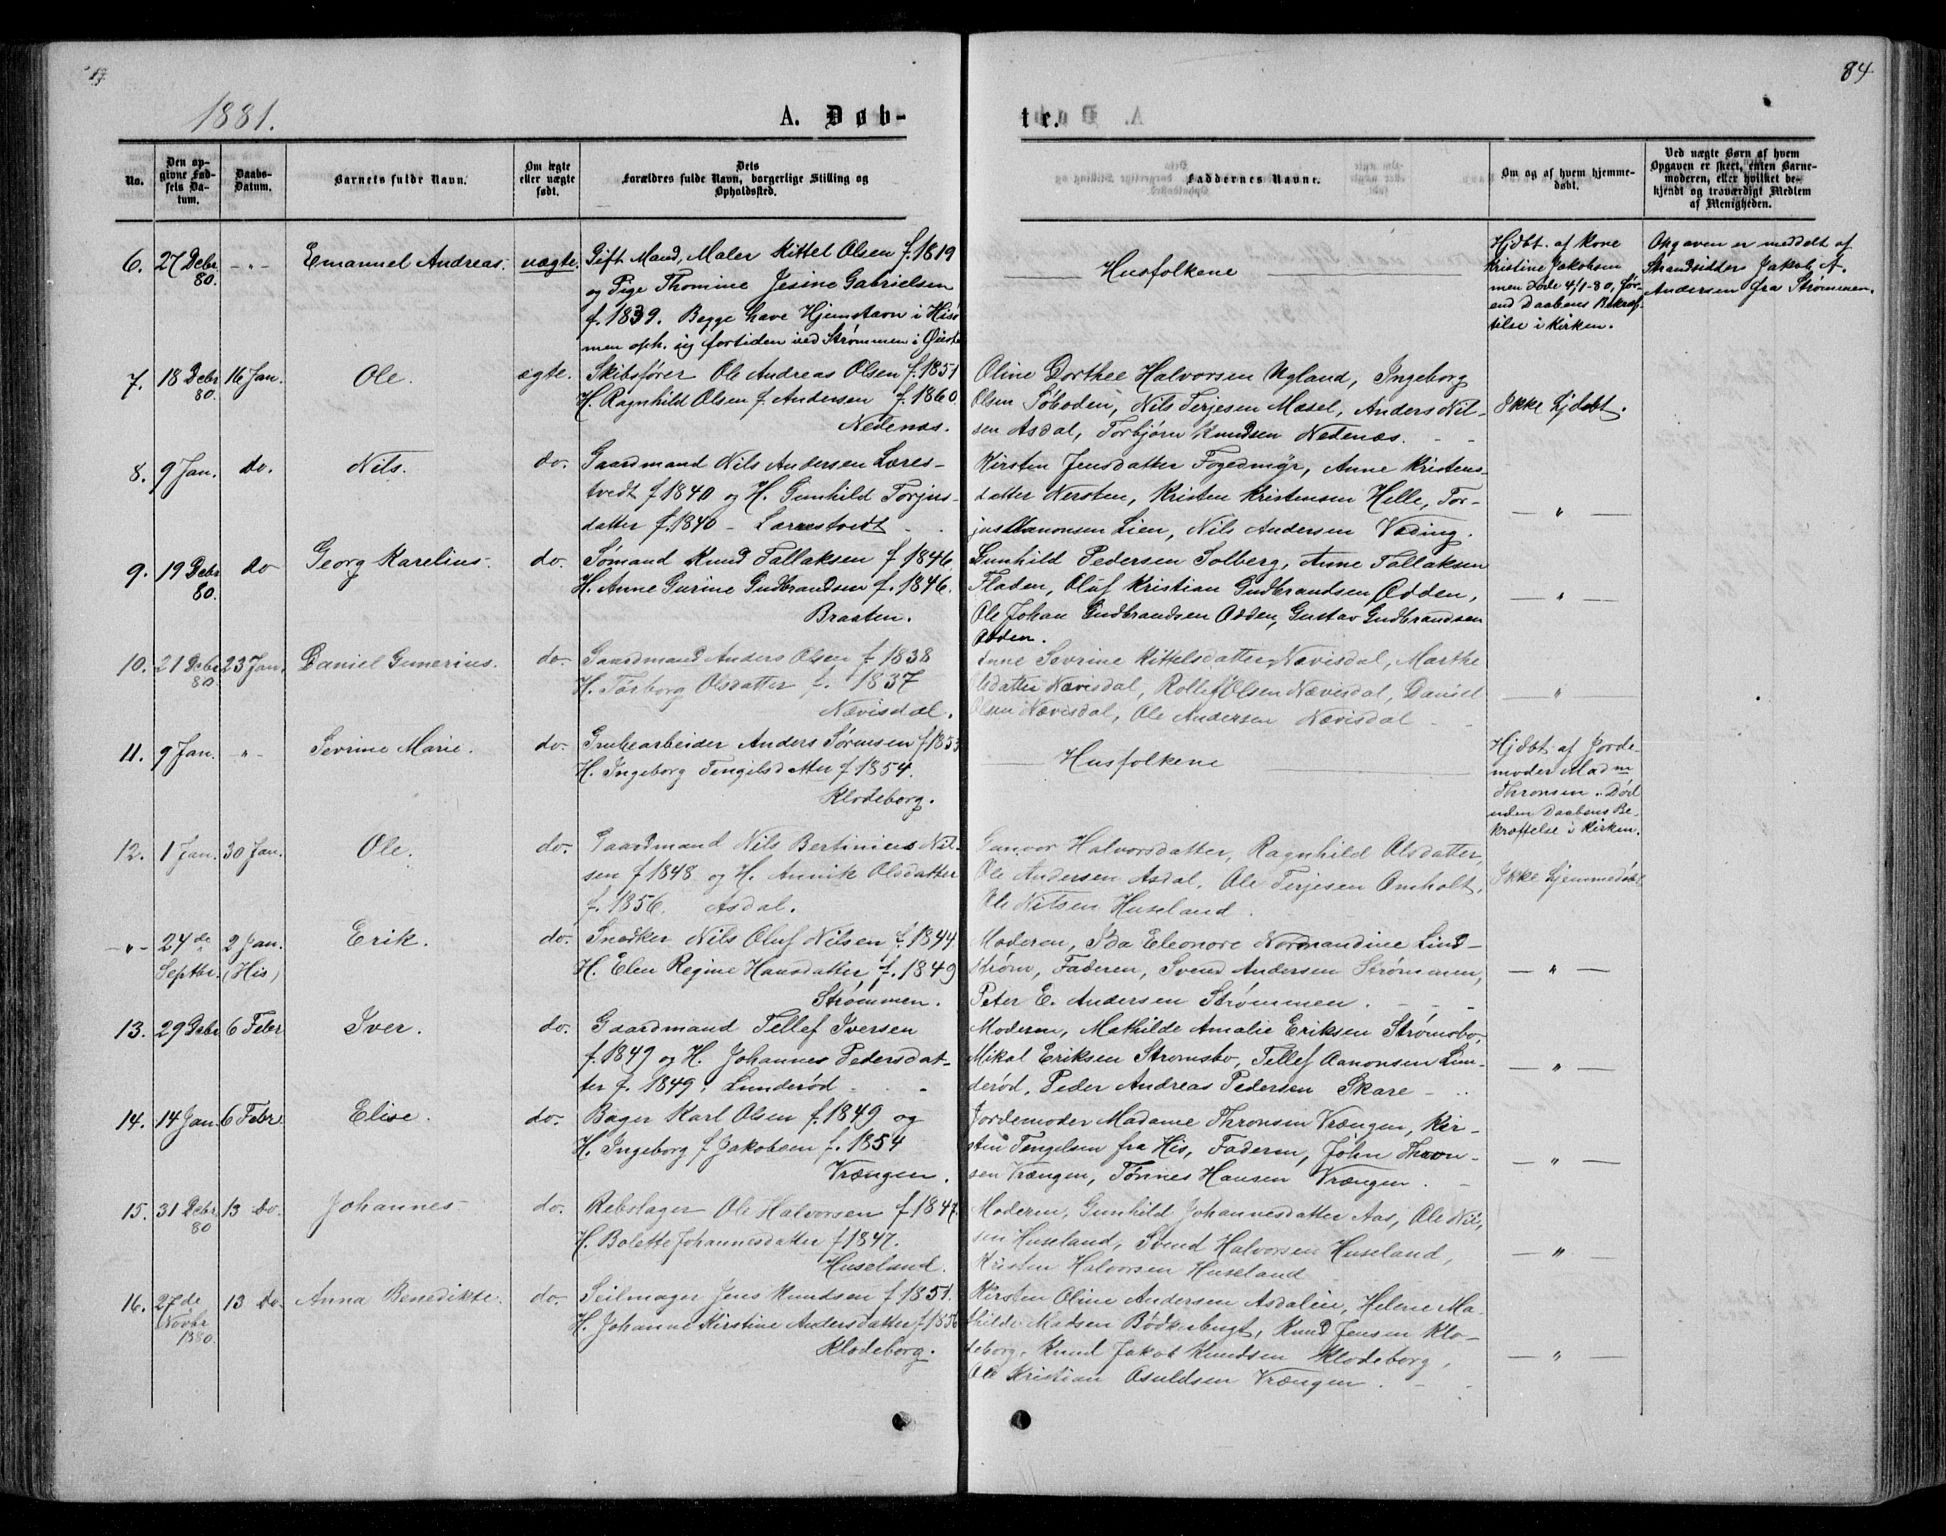 84
1881.
A. Døb-
te.
No.
Den op-
givne Fød-
sels Da-
tum.
Daabs-
Datum.
Barnets fulde Navn.
Om ægte
eller uægte
født.
Dets
Forældres fulde Navn, borgerlige Stilling og
Opholdssted.
Faddernes Navne.
Om og af hvem hjemme-
døbt.
Ved uægte Børn af hvem
Opgaven er skeet, enten Barne-
moderen, eller hvilket be-
kjendt og troværdigt Medlem
af Menigheden.
6.
27 Debr
80.
-"-
Emanuel Andreas.
uægte.
Gift Mand, Maler Kittel Olsen f. 1819
og Pige Thomine Jesine Gabrielsen
f. 1839. Begge have Hjemstavn i His
men oph. sig fortiden ved Strømmen i Øiest
Husfolkene
Hjdbt. af Kone
Kristine Jakobsen
men døde 4/1-80, før-
end Daabens Bekræf-
telse i Kirken.
Opgaven er meddelt af
Strandsidder Jakob A.
Andersen fra Strømmen.
7.
18 Debr
80.
16 Jan.
Ole.
ægte.
Skibsfører Ole Andreas Olsen f. 1851
H. Ragnhild Olsen f. Andersen f. 1860.
Nedenæs.
Oline Dorthee Halvorsen Ugland, Ingeborg
Olsen Søboden, Nils Terjesen Mæsel, Anders Nil-
sen Asdal, Torbjørn Knudsen Nedenæs.
Ikke hjdbt.
8.
9 Jan.
do.
Nils.
do.
Gaardmand Nils Andersen Læres-
tvedt f 1840 og H. Gunhild Torjus-
datter f. 1840 - Lærrestvedt
Kirsten Jensdatter Fogedmyr, Anne Kristens-
datter Nersten, Kristen Kristensen Helle, Tor-
jus Aanonsen Lien, Nils Andersen Vøding.
"
9.
19 Debr
80.
do
Georg Karelius.
do.
Sømand Knud Tallaksen f. 1846.
H. Anne Gurine Gudbrandsen f. 1846.
Braaten.
Gunhild Pedersen Solberg, Anne Tallaksen
Fladen, Oluf Kristian Gudbrandsen Odden,
Ole Johan Gudbrandsen Odden, Gustav Gudbrandsen
Odden.
"
10.
21 Debr
80.
23 Jan.
Daniel Gunerius.
do.
Gaardmand Anders Olsen f. 1838
H. Torborg Olsdatter f. 1837
Nævisdal.
Anne Sevrine Kittelsdatter Nævisdal, Marthe
Olsdatter Nævisdal, Rollef Olsen Nævisdal, Daniel
Olsen Nævisdal, Ole Andersen Nævisdal
"
11.
9 Jan.
"
Sevrine Marie.
do.
Grubearbeider Anders Sørensen f 1853
H. Ingeborg Tengelsdatter f 1854.
Klodeborg.
Husfolkene
Hjdbt. af Jorde-
moder Madm
Thronsen. Død
uden Daabens Be-
kræftelse i Kirken.
12.
1 Jan.
30 Jan.
Ole.
do.
Gaardmand Nils Bertinius Nil-
sen f 1848 og H. Annik Olsdatter
f. 1856. Asdal.
Gunvor Halvorsdatter, Ragnhild Olsdatter,
Ole Andersen Asdal, Ole Terjesen Omholt,
Ole Nilsen Huseland.
Ikke hjemmedøbt
-"-
24de
Septbr.
2 Jan.
(His)
Erik.
do.
Snedker Nils Oluf Nilsen f. 1844.
H. Elen Regine Hansdatter f. 1849
Strømmen.
Moderen, Ida Eleonore Nordmandine Lind-
strøm, Faderen, Svend Andersen Strømmen,
Peter E. Andersen Strømmen.
"
13.
29 Debr
6 Febr
Iver.
do.
Gaardmand Tellef Iversen
f. 1849 og H. Johanne Pedersdat-
ter f. 1849. Lunderød
Moderen, Mathilde Amalie Eriksen Strømsbo,
Mikal Eriksen Strømsbo, Tellef Aanonsen Lun-
derød, Peder Andreas Pedersen Skare
"
14.
14 Jan.
6 Febr.
Elise.
do.
Bager Karl Olsen f. 1849 og
H. Ingeborg f Jakobsen f. 1854
Vrængen.
Jordemoder Madame Thronsen Vrængen, Kir-
stine Tengelsen fra His, Faderen, John Thron-
sen Vrængen, Tønnes Hansen Vrængen.
"
15.
31 Debr
80
13 do.
Johannes.
do.
Rebslager Ole Halvorsen f 1847.
H. Bolette Johannesdatter f 1847.
Huseland.
Moderen, Gunhild Johannesdatter Aas, Ole Nil-
sen Huseland, Svend Halvorsen Huseland,
Kristen Halvorsen Huseland
"
16.
27de
Novbr
1880.
13 do.
Anna Benedikte.
do.
Seilmager Jens Knudsen f 1851.
H. Johanne Kirstine Andersdatter f 1856
Klodeborg.
Kirsten Oline Andersen Asdalen, Helene Ma-
thilde Madsen Bødkerbugt, Knud Jensen Klo-
deborg, Knud Jakob Knudsen Klodeborg,
Ole Kristian Osuldsen Vrængen.
"